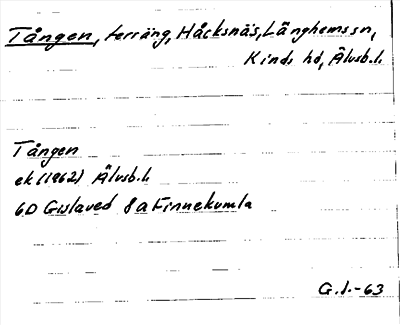 Tången, terräng, Håcksnäs, Länghems sn,
Kinds hd, Älvsb.l.
Tången
ek (1962) Älvsb.l.
6D Gislaved 8a Finnekumla
G.l.-63